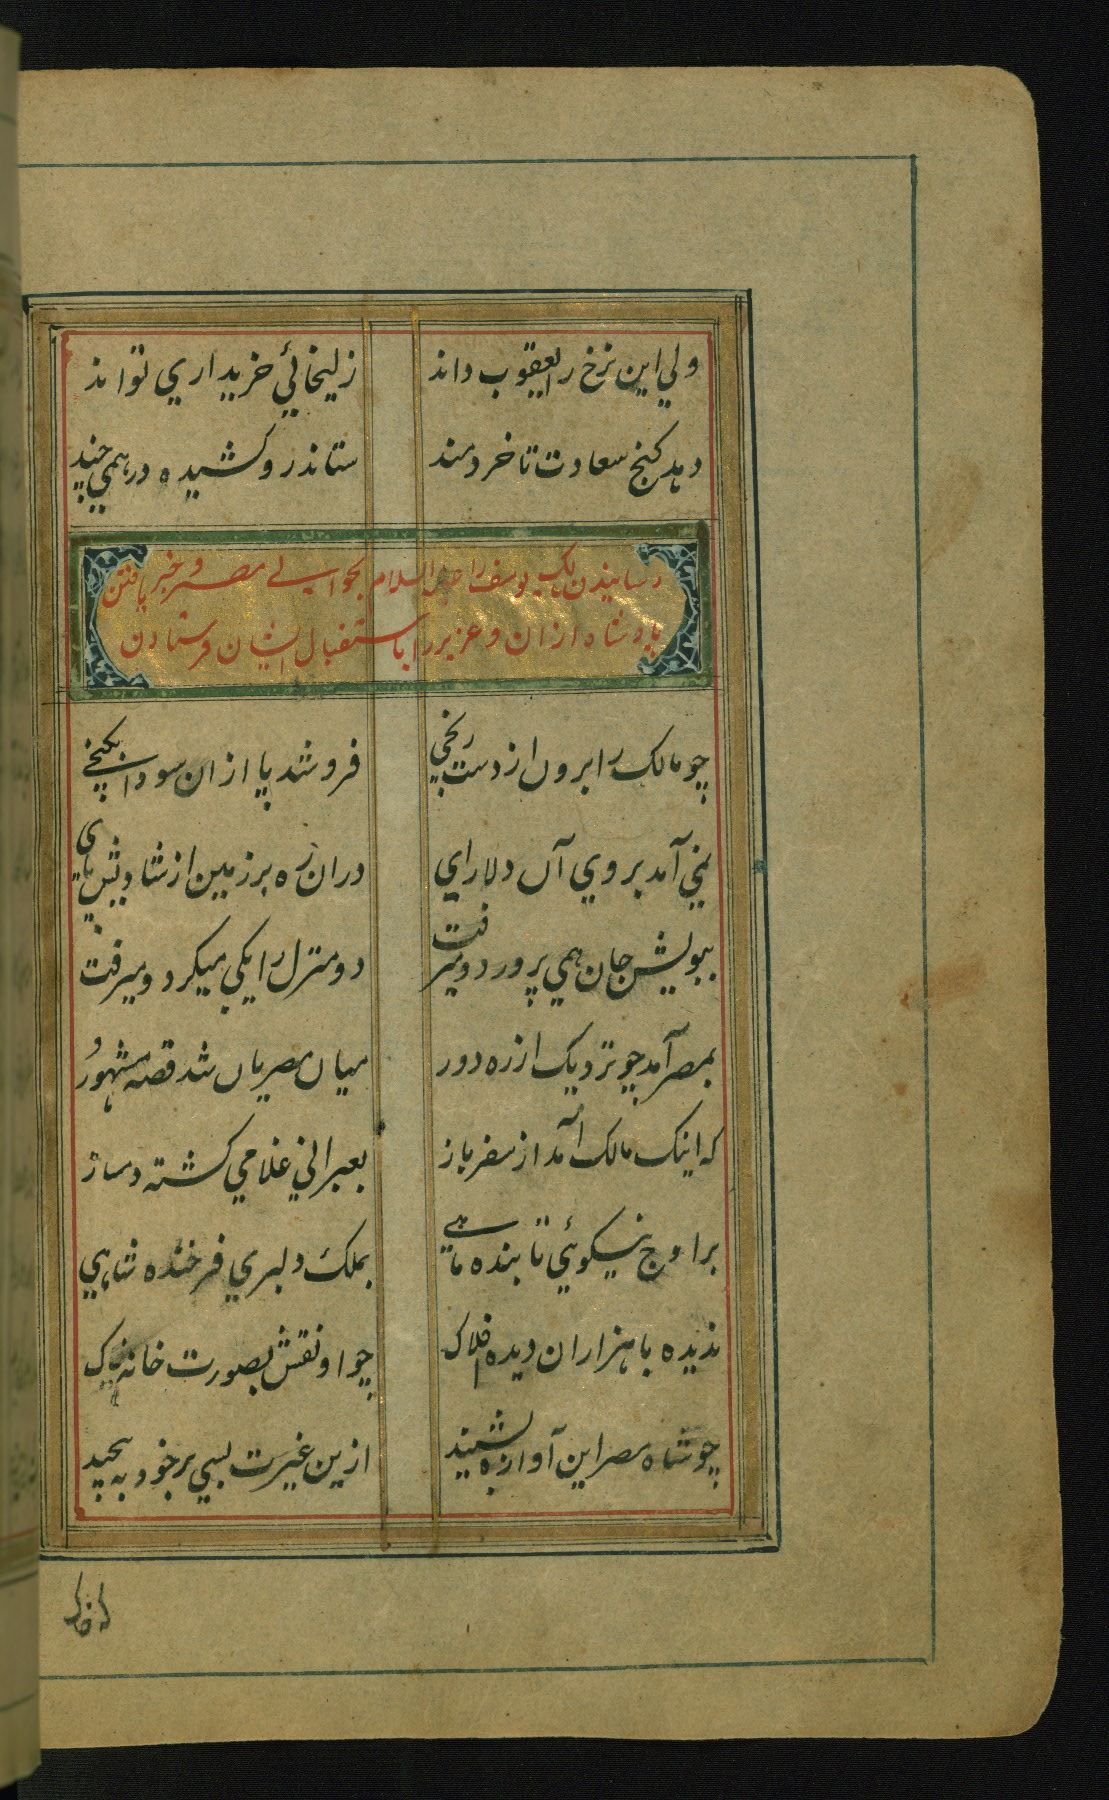 ولي اين نرخ را يعقوب داند زليخائي خريداري تواند
دهد كنج سعادت تا خردمند ستاند رو كشيده درهمي چند
رسانيدن مالك يوسف را عليه السلام بحوالي مصر و خبر يافتن
پادشاه ازان و عزيز را باستقبال ايشان فرستادن
چو مالك را برون از دست رنجي فروشد پا ازان سودا بكنجي
نمي آمد بروي آن دلاراي دران ره بر زمين از شاديش پاي
ببويش جان همي پرورد و ميرفت دو منزل را يكي ميكرد و ميرفت
بمصر آمد چو نزديك از ره دور ميان مصريان شد قصه مشهور
كه اينك مالك آمد از سفر باز بعبراني غلامي كشته دمساز
بر اوج نيكوئي تابنده ماهي بملك دلبري فرخنده شاهي
نديده با هزاران ديده افلاك چو او نقشي بصورت خانه خاك
چو شاه مصر اين آوازه بشنيد ازين غيرت بسي بر خود به پيچيد
كه خاك